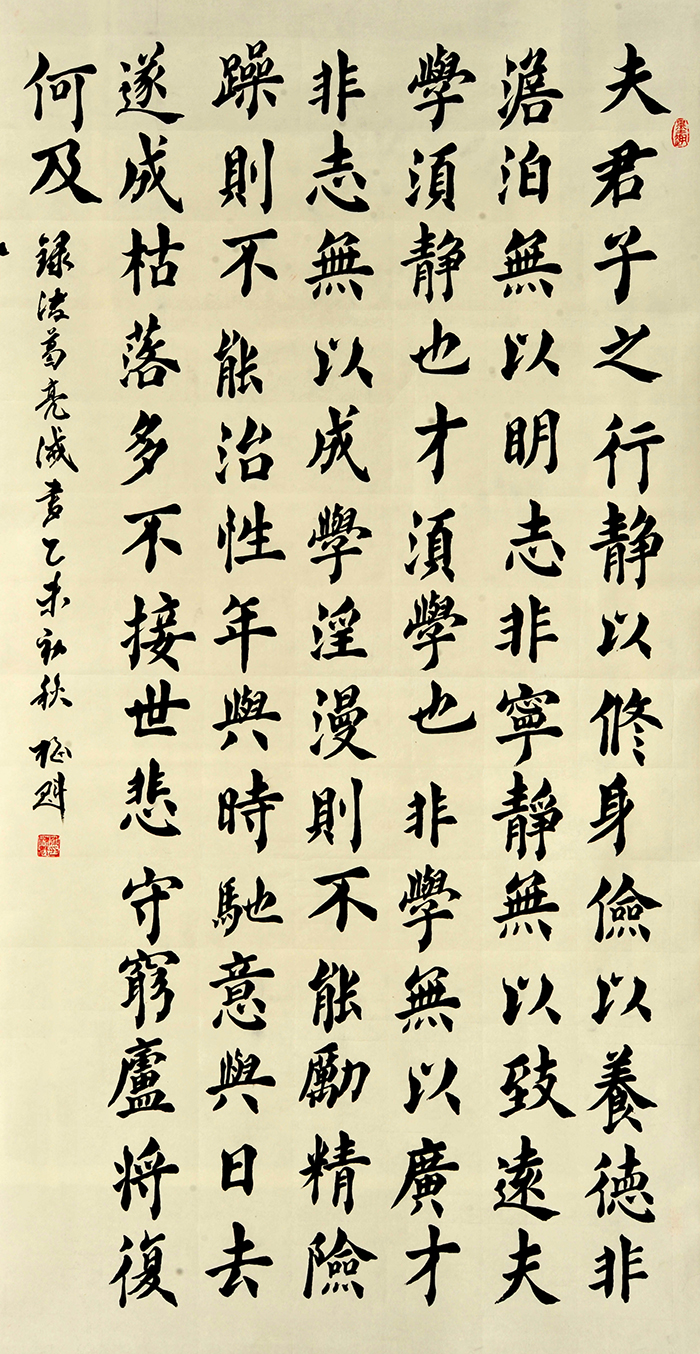 夫君子之行静以修身儉以養德非
澹泊無以明志非寧靜無以致遠夫
學須静也才須學也非學無以廣才
非志無以成學淫漫則不能勵精險
躁則不能治性年與時馳意與日去
遂成枯落多不接世悲守窮廬將復
何及
録諸葛亮誡書乙未初秋